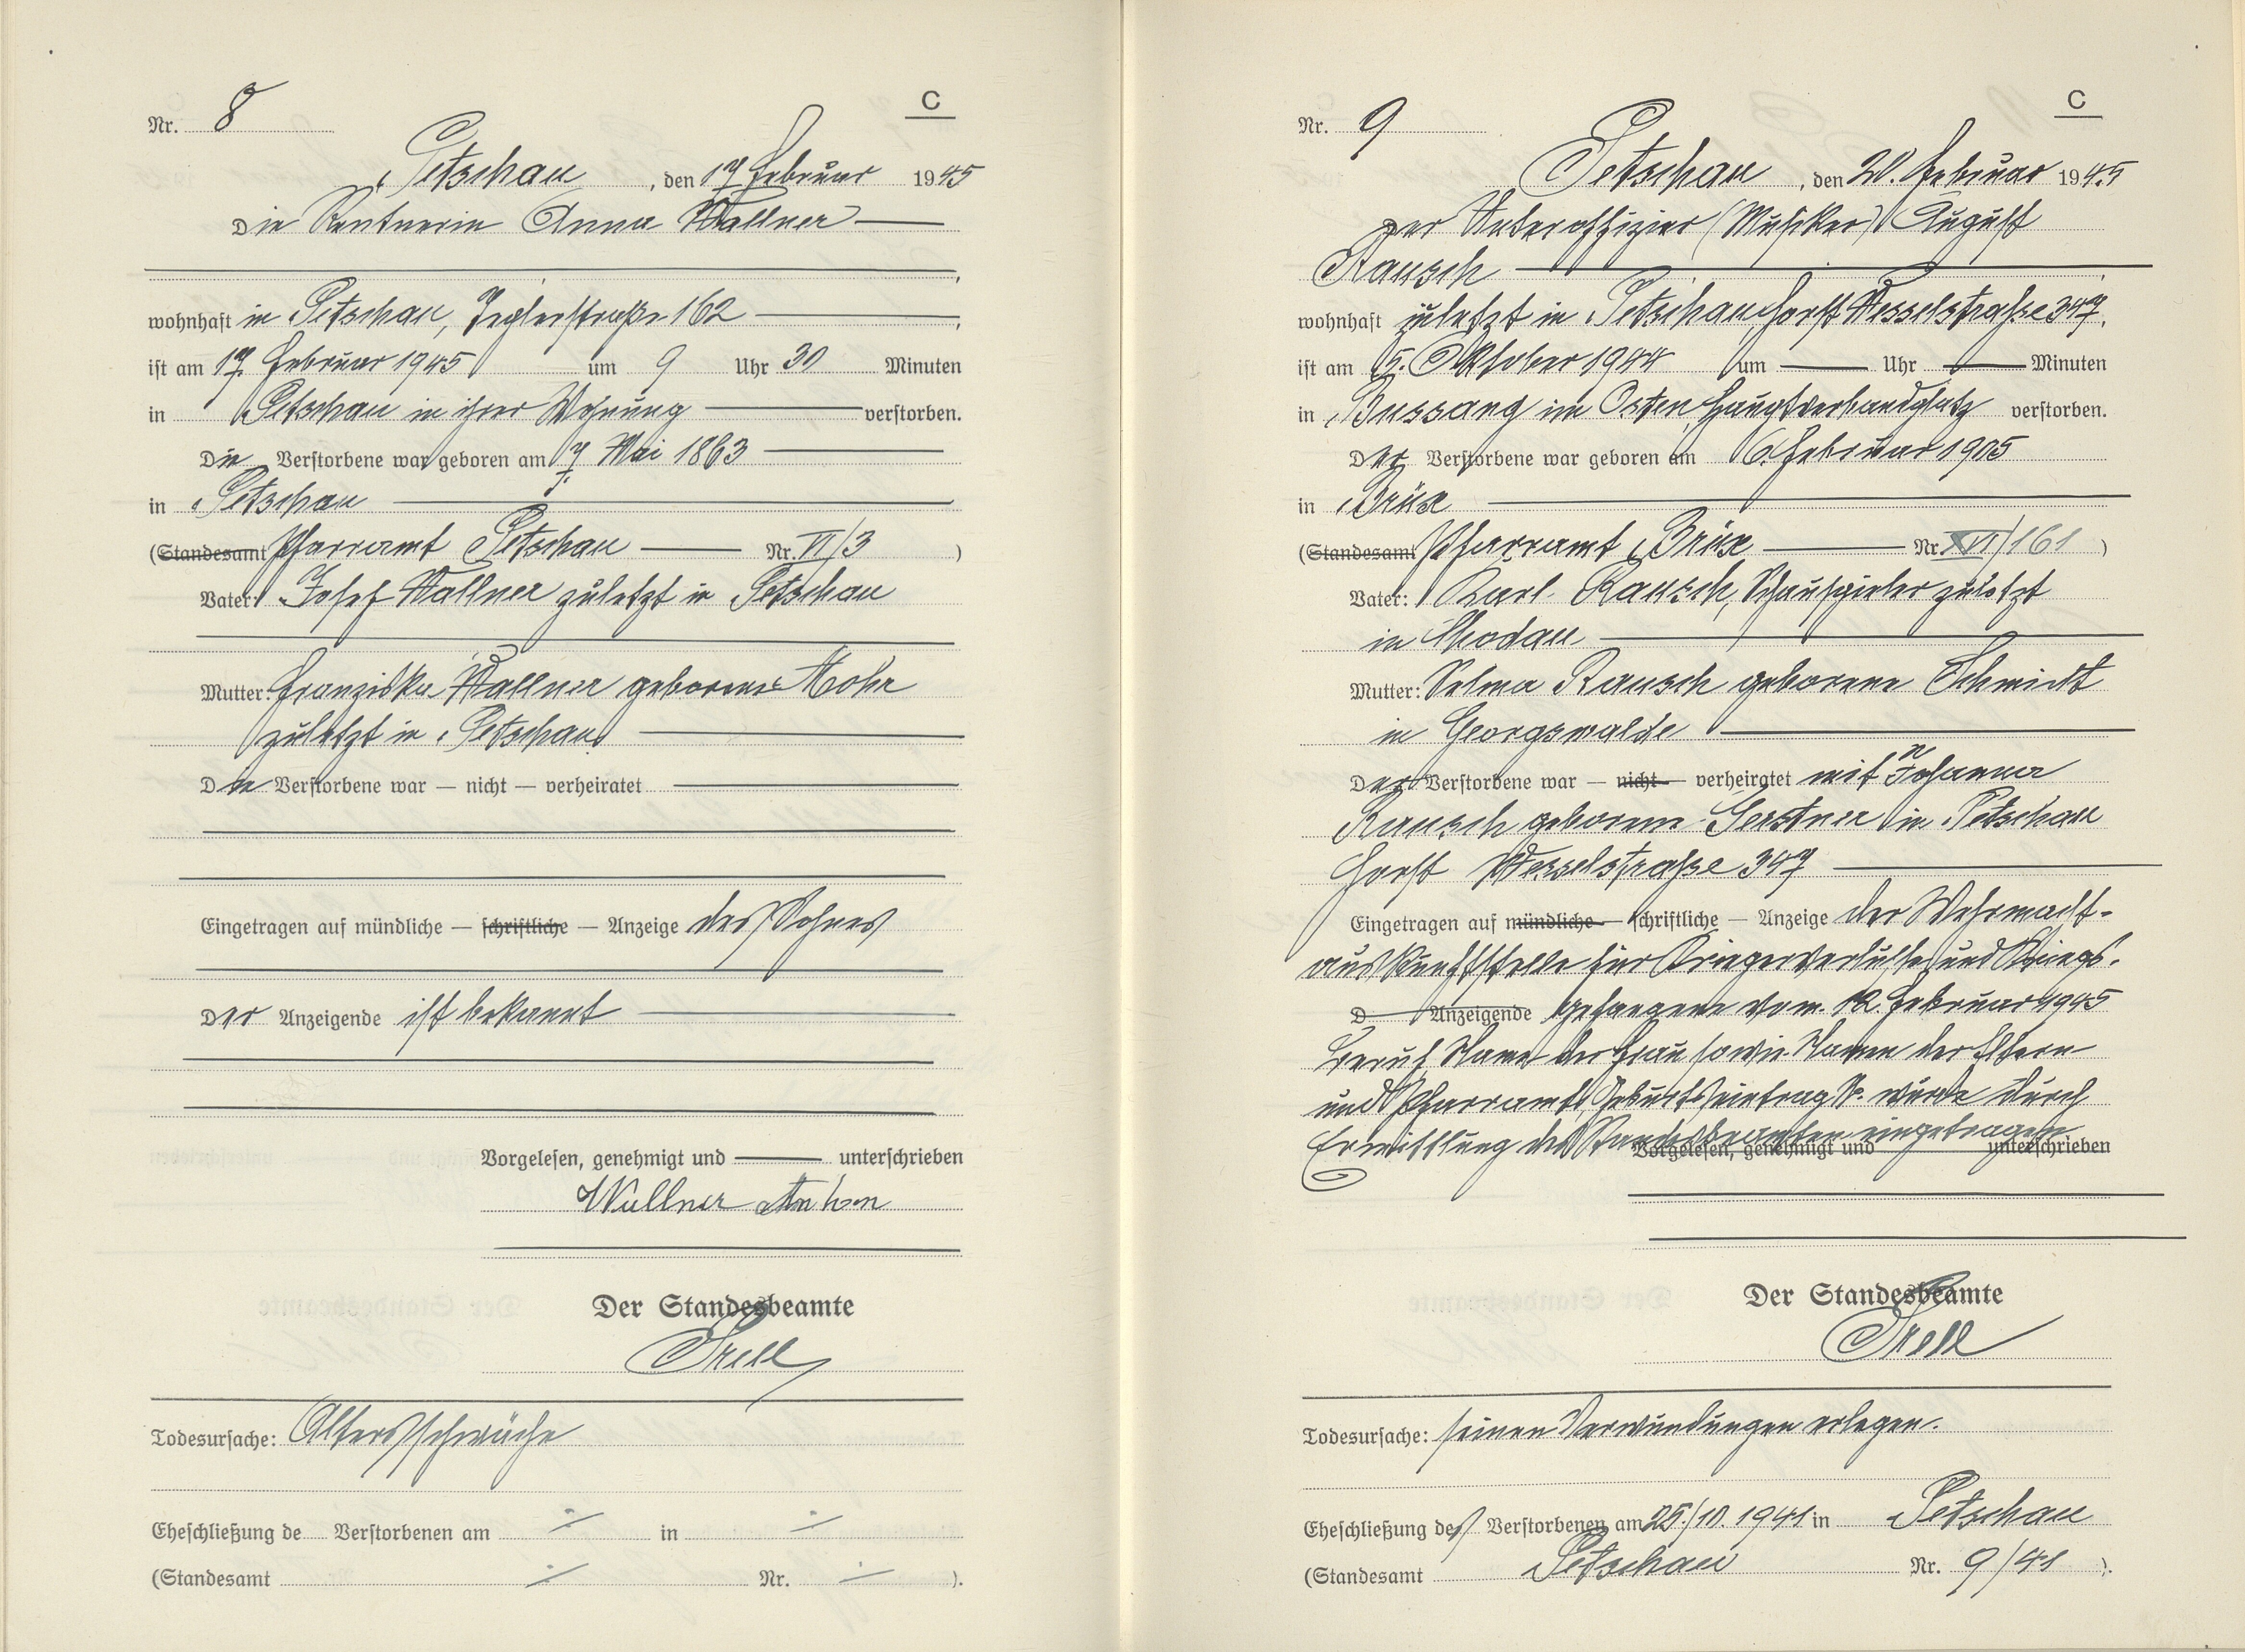 C
Nr. 8
Petschau, den 17. Februar 1945
Die Rentnerin Anna Wallner
wohnhaft in Petschau, Teglerstraße 162
ist am 17. Februar 1945 um 9 Uhr 30 Minuten
in Petschau in ihrer Wohnung verstorben.
Die Verstorbene war geboren am 7. Mai 1863
in Petschau
(Standesamt Pfarramt Petschau Nr. VI/3)
Vater: Josef Wallner zuletzt in Petschau
Mutter: Franziska Wallner geborene Mohr
zuletzt in Petschau
Die Verstorbene war — nicht — verheiratet
Eingetragen auf mündliche — schriftliche — Anzeige des Sohnes
Der Anzeigende ist bekannt
Vorgelesen, genehmigt und unterschrieben
Wallner Anton
Der Standesbeamte
Todesursache: Altersschwäche
Eheschließung de Verstorbenen am ÷ in ÷
(Standesamt ÷ Nr. ÷ ).
C
Nr. 9
Petschau, den 20. Februar 1945
Der Unteroffizier (Musiker) August
Rausch
wohnhaft zuletzt in Petschau, Horst Wesselstraße 347,
ist am 5. Oktober 1944 um Uhr Minuten
in Bussang im Osten, Hauptverbandplatz verstorben.
Der Verstorbene war geboren am 6. Februar 1905
in Brüx
(Standesamt Pfarramt Brüx Nr. XVI/161)
Vater: Karl Rausch, Schauspieler zuletzt
in Chodau
Mutter: Selma Rausch geborene Schmidt
in Georgswalde
Der Verstorbene war — nicht — verheiratet mit Johanna
Rausch geborene Gerstner in Petschau
Horst Wesselstraße 347
Eingetragen auf mündliche — schriftliche — Anzeige der Wehrmacht-
auskunftstelle für Kriegerverluste und Kriegs-
D Anzeigende gefangene vom 12. Februar 1945
Beruf, Name der Frau sowie Namen der Eltern
und Pfarramt, Geburtseintrag N. wurde durch
Ermittlung des Standesbeamten eingetragen.
Vorgelesen, genehmigt und unterschrieben
Der Standesbeamte
Todesursache: seinen Verwundungen erlegen.
Eheschließung des Verstorbenen am 25./10. 1941 in Petschau
(Standesamt Petschau Nr. 9/41 ).